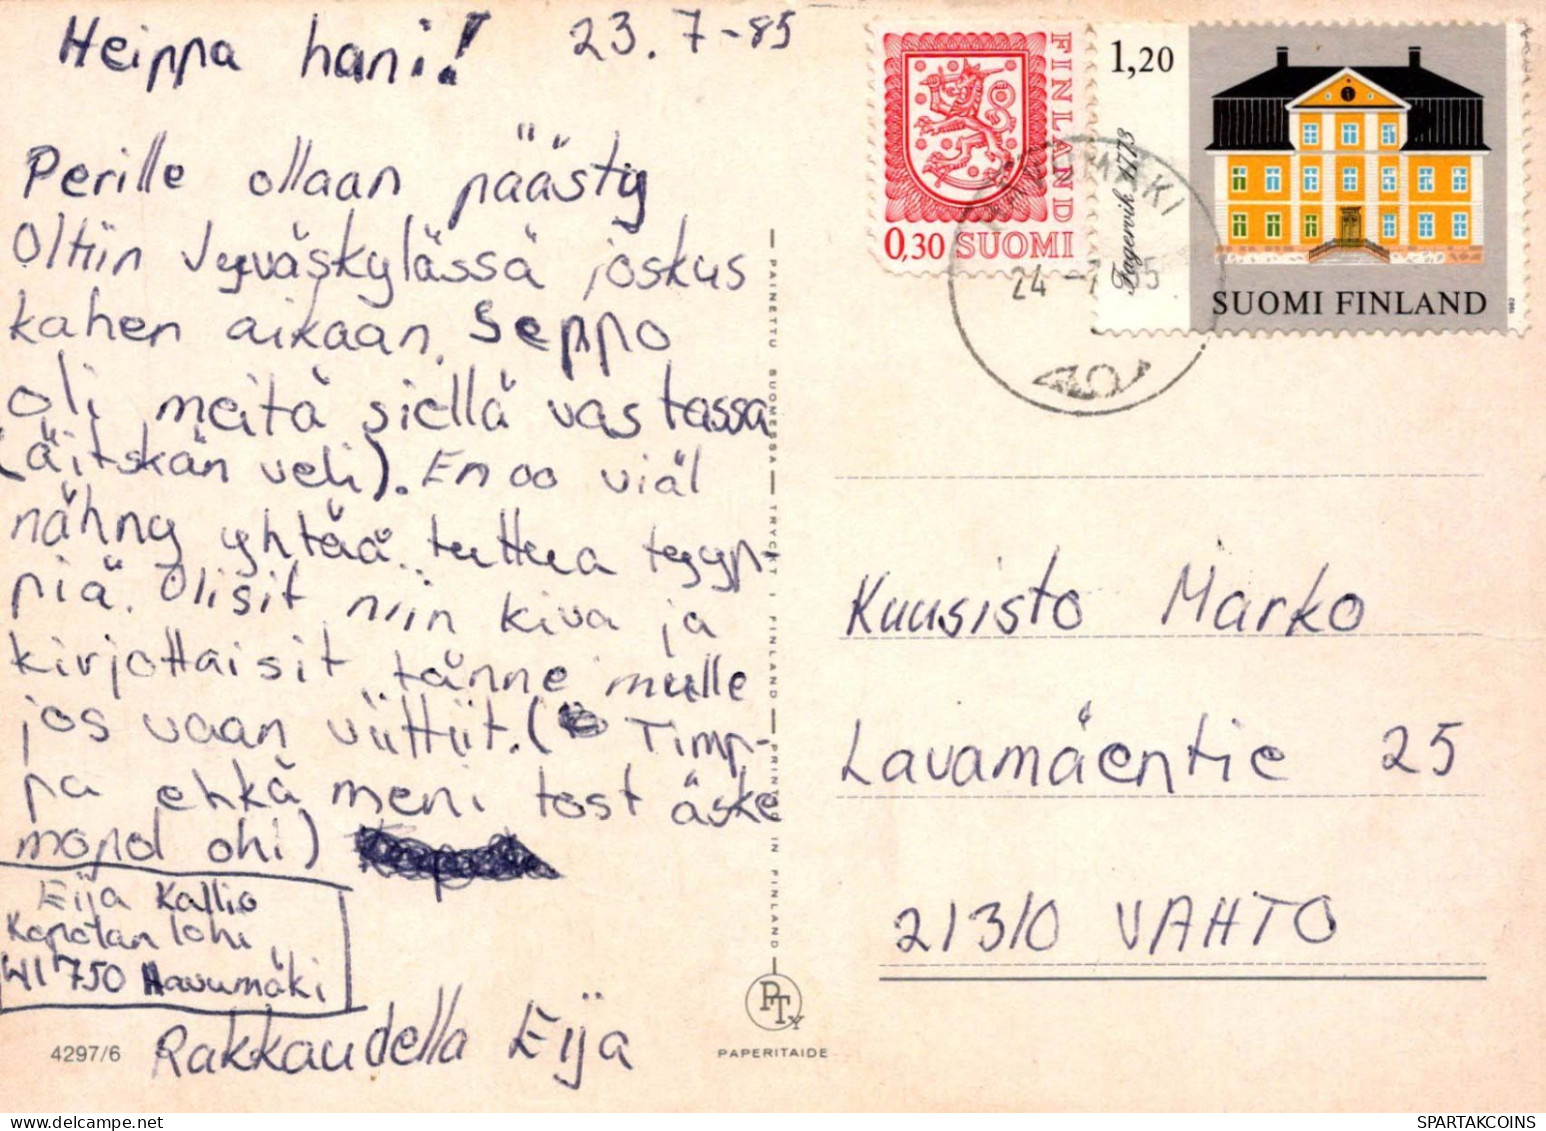 Heippa hani! 23.7-85
Perille ollaan päästy
Oltiin Jyväskylässä joskus
kahen aikaan. Seppo
oli meitä siellä vastassa
(äitskän veli). En oo viäl
nähny yhtää tuttua tyyp-
piä. Olisit niin kiva ja
kirjottaisit tänne mulle
jos vaan viittiit. ( Timp-
pa ehkä meni tost äske
mopol ohi)
Eija Kallio
Kapatan lohi
41750 Havumäki
Rakkaudella Eija
4297/6
PAINETTU SUOMESSA — TRYCKT I FINLAND — PRINTED IN FINLAND
PTY
PAPERITAIDE
FINLAND
0,30 SUOMI
1,20
Fagervik 1773
SUOMI FINLAND
1982
HAVUMÄKI
24 -7 85
Kuusisto Marko
Lavamäentie 25
21310 VAHTO
SPARTAKCOINS